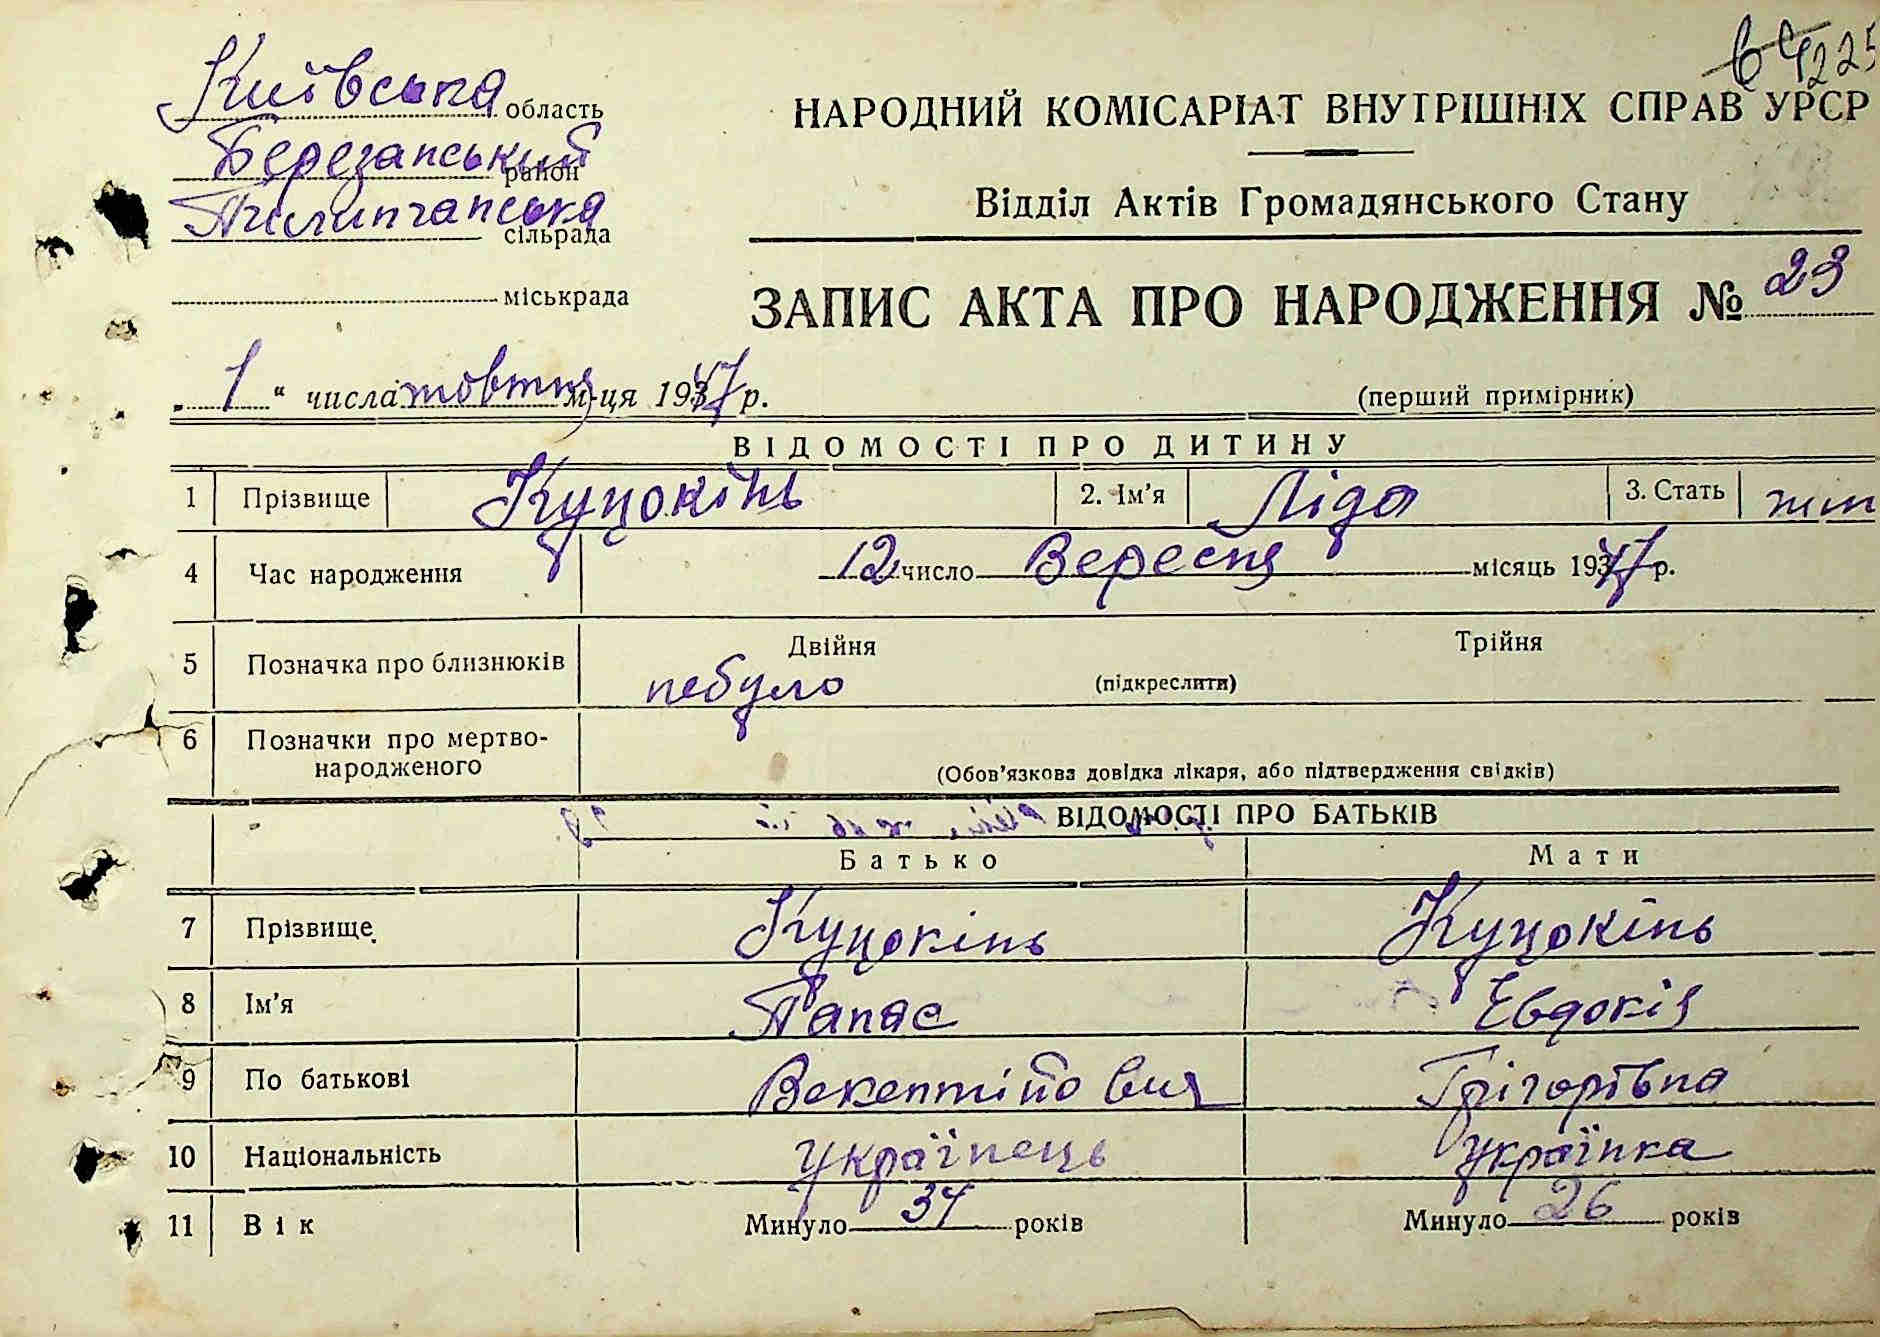 225
Київська область
НАРОДНИЙ КОМІСАРІАТ ВНУТРІШНІХ СПРАВ УРСР
Березанський район
Пилипчанська сільрада
Відділ Актів Громадянського Стану
міськрада
ЗАПИС АКТА ПРО НАРОДЖЕННЯ № 23
„1“ числа жовтня м-ця 1937 р.
(перший примірник)
ВІДОМОСТІ ПРО ДИТИНУ
1 Прізвище Куцокінь 2. Ім'я Ліда 3. Стать жін
4 Час народження 12 число Вересня місяць 1937 р.
5 Позначка про близнюків Двійня Трійня
небуло (підкреслити)
6 Позначки про мертво-
народженого (Обов'язкова довідка лікаря, або підтвердження свідків)
ВІДОМОСТІ ПРО БАТЬКІВ
Батько Мати
7 Прізвище Куцокінь Куцокінь
8 Ім'я Панас Евдокія
9 По батькові Григорівна
10 Національність українець українка
11 Вік Минуло 34 років Минуло 26 років